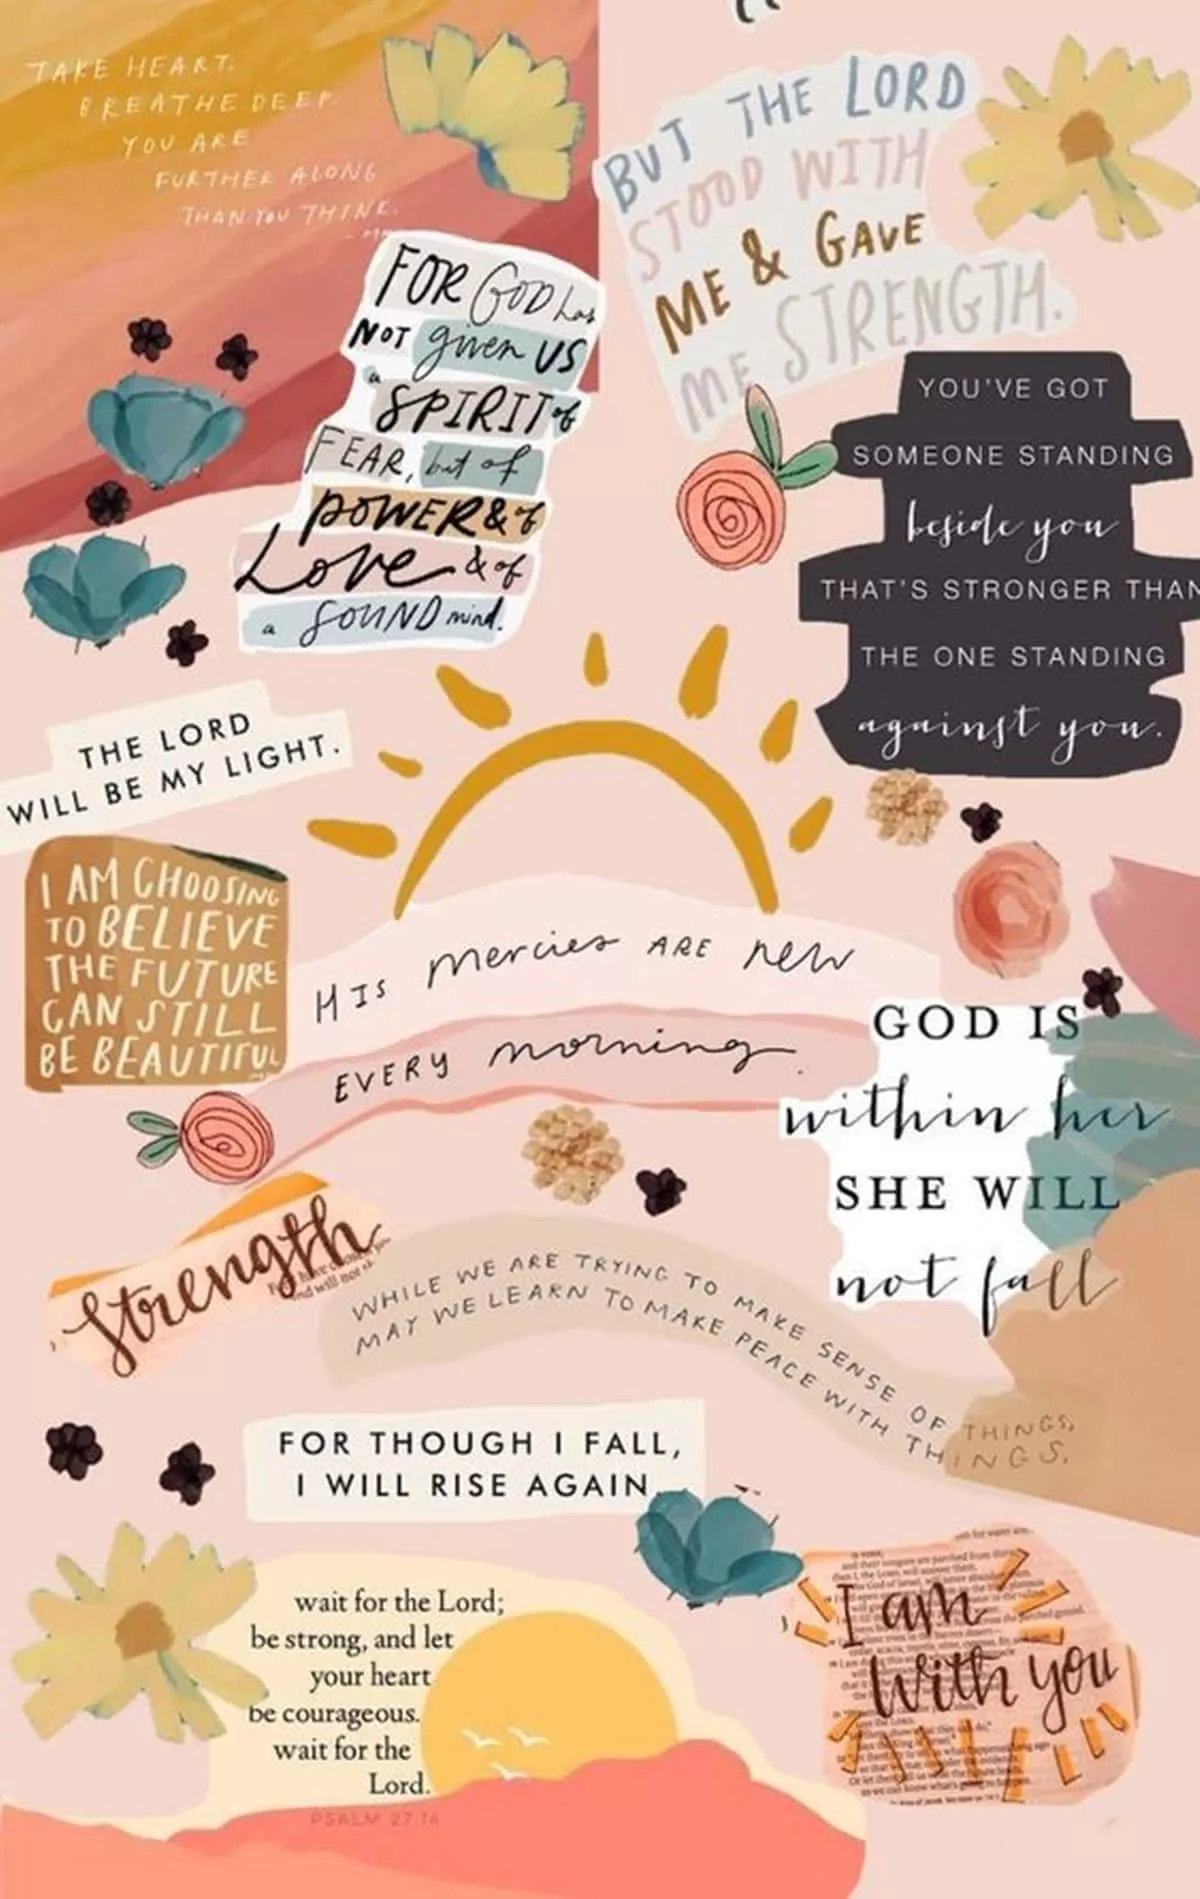 TAKE HEART.
BREATHE DEEP.
YOU ARE
FURTHER ALONG
THAN YOU THINK.
BUT THE LORD
STOOD WITH
ME & GAVE
ME STRENGTH.
FOR GOD has
NOT given US
a SPIRIT of
FEAR, but of
POWER & of
Love & of
a SOUND mind.
YOU'VE GOT
SOMEONE STANDING
beside you
THAT'S STRONGER THAN
THE ONE STANDING
against you.
THE LORD
WILL BE MY LIGHT.
I AM CHOOSING
TO BELIEVE
THE FUTURE
CAN STILL
BE BEAUTIFUL
HIS mercies ARE new
EVERY morning.
GOD IS
within her
SHE WILL
not fall
Strength
WHILE WE ARE TRYING TO MAKE SENSE OF THINGS,
MAY WE LEARN TO MAKE PEACE WITH THINGS.
FOR THOUGH I FALL,
I WILL RISE AGAIN
wait for the Lord;
be strong, and let
your heart
be courageous.
wait for the
Lord.
PSALM 27:14
I am
with you